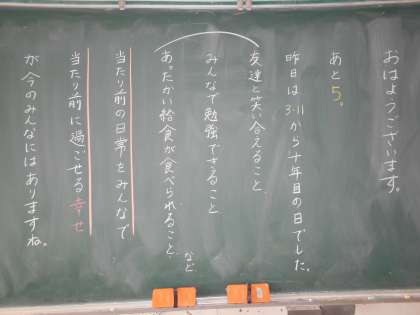 おはようございます。
あと5。
昨日は3.11から十年目の日でした。
友達と笑い合えること
みんなで勉強できること
あったかい給食が食べられること など
当たり前の日常をみんなで
当たり前に過ごせる幸せ
が今のみんなにはありますね。